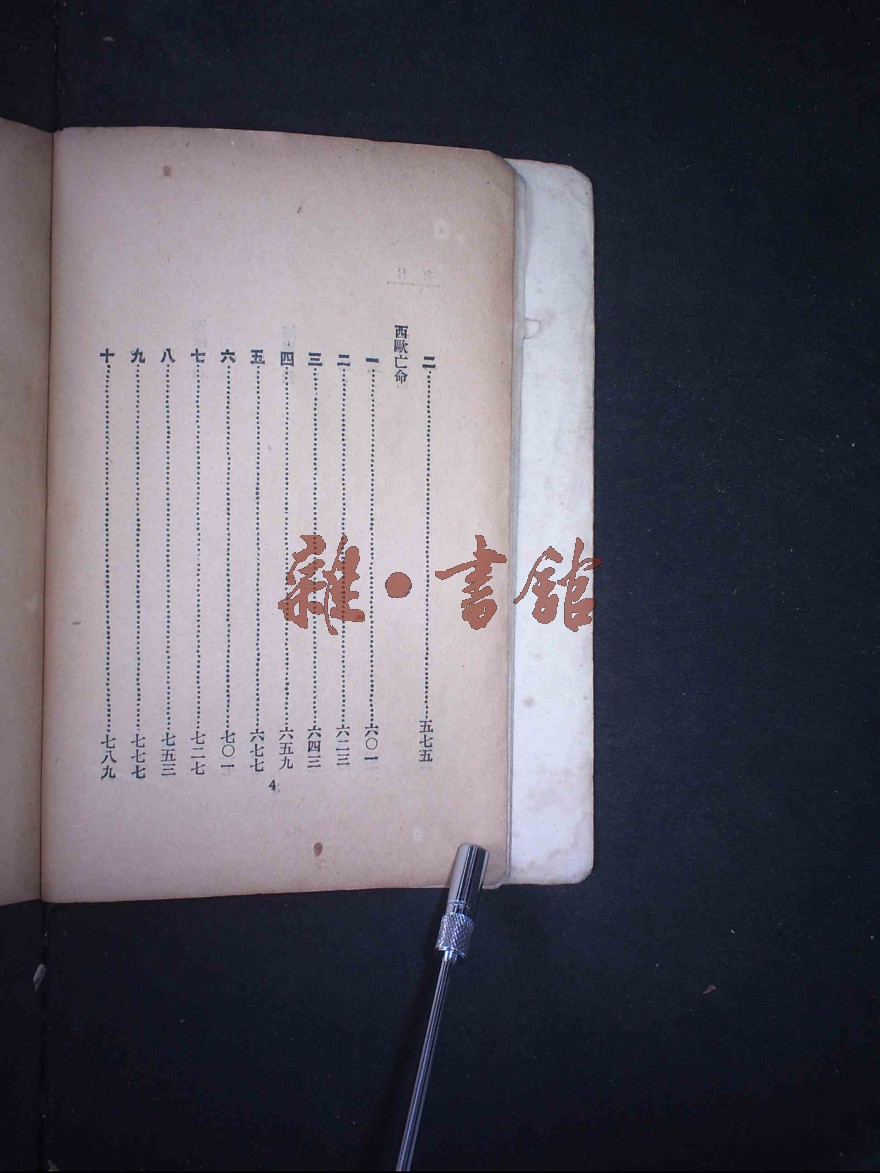 二……五七五
西歐亡命
一……六〇一
二……六二三
三……六四三
四……六五九
五……六七七
六……七〇一
七……七二七
八……七五三
九……七七七
十……七八九
4
雜·書館